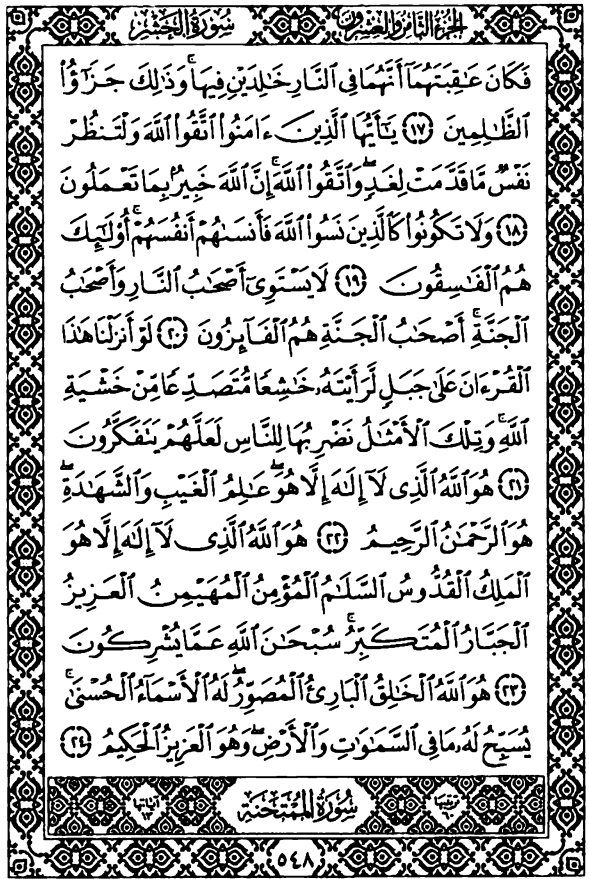 الجزء الثامن والعشرون سورة الحشر
فَكَانَ عَٰقِبَتَهُمَآ أَنَّهُمَا فِى ٱلنَّارِ خَٰلِدَيْنِ فِيهَا ۚ وَذَٰلِكَ جَزَٰٓؤُا۟
ٱلظَّٰلِمِينَ ١٧ يَٰٓأَيُّهَا ٱلَّذِينَ ءَامَنُوا۟ ٱتَّقُوا۟ ٱللَّهَ وَلْتَنظُرْ
نَفْسٌ مَّا قَدَّمَتْ لِغَدٍ ۖ وَٱتَّقُوا۟ ٱللَّهَ ۚ إِنَّ ٱللَّهَ خَبِيرٌۢ بِمَا تَعْمَلُونَ
١٨ وَلَا تَكُونُوا۟ كَٱلَّذِينَ نَسُوا۟ ٱللَّهَ فَأَنسَىٰهُمْ أَنفُسَهُمْ ۚ أُو۟لَٰٓئِكَ
هُمُ ٱلْفَٰسِقُونَ ١٩ لَا يَسْتَوِىٓ أَصْحَٰبُ ٱلنَّارِ وَأَصْحَٰبُ
ٱلْجَنَّةِ ۚ أَصْحَٰبُ ٱلْجَنَّةِ هُمُ ٱلْفَآئِزُونَ ٢٠ لَوْ أَنزَلْنَا هَٰذَا
ٱلْقُرْءَانَ عَلَىٰ جَبَلٍ لَّرَأَيْتَهُۥ خَٰشِعًا مُّتَصَدِّعًا مِّنْ خَشْيَةِ
ٱللَّهِ ۚ وَتِلْكَ ٱلْأَمْثَٰلُ نَضْرِبُهَا لِلنَّاسِ لَعَلَّهُمْ يَتَفَكَّرُونَ
٢١ هُوَ ٱللَّهُ ٱلَّذِى لَآ إِلَٰهَ إِلَّا هُوَ ۖ عَٰلِمُ ٱلْغَيْبِ وَٱلشَّهَٰدَةِ ۖ
هُوَ ٱلرَّحْمَٰنُ ٱلرَّحِيمُ ٢٢ هُوَ ٱللَّهُ ٱلَّذِى لَآ إِلَٰهَ إِلَّا هُوَ
ٱلْمَلِكُ ٱلْقُدُّوسُ ٱلسَّلَٰمُ ٱلْمُؤْمِنُ ٱلْمُهَيْمِنُ ٱلْعَزِيزُ
ٱلْجَبَّارُ ٱلْمُتَكَبِّرُ ۚ سُبْحَٰنَ ٱللَّهِ عَمَّا يُشْرِكُونَ
٢٣ هُوَ ٱللَّهُ ٱلْخَٰلِقُ ٱلْبَارِئُ ٱلْمُصَوِّرُ ۖ لَهُ ٱلْأَسْمَآءُ ٱلْحُسْنَىٰ ۚ
يُسَبِّحُ لَهُۥ مَا فِى ٱلسَّمَٰوَٰتِ وَٱلْأَرْضِ ۖ وَهُوَ ٱلْعَزِيزُ ٱلْحَكِيمُ ٢٤
ترتيبها ٦٠ سُورَةُ الْمُمْتَحَنَةِ آياتها ١٣
٥٤٨